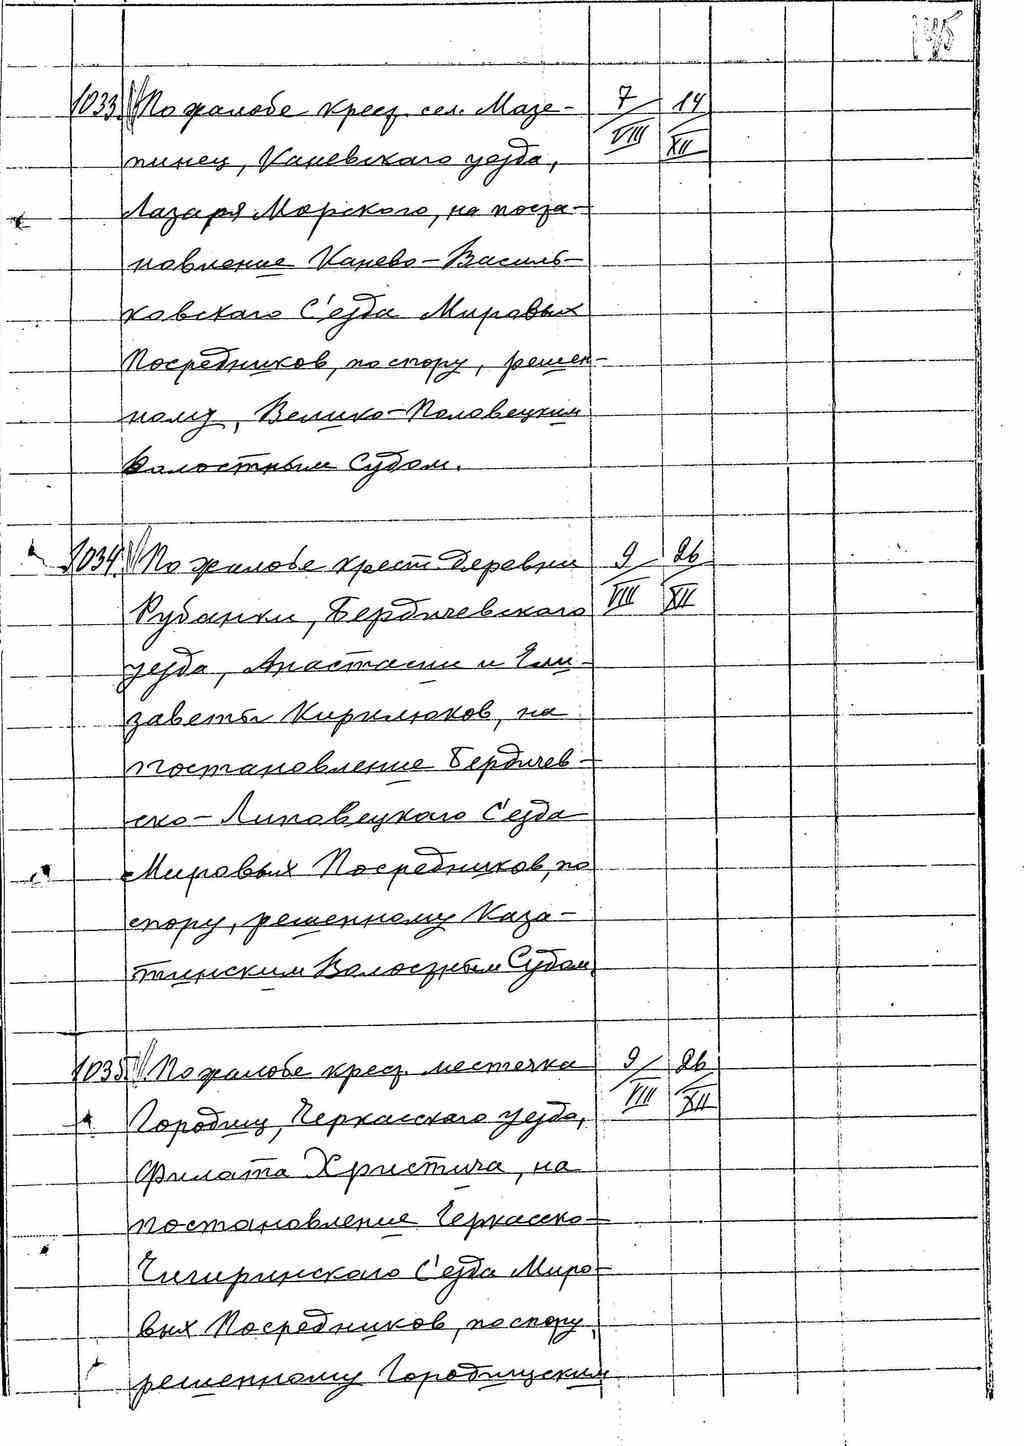 1033 По жалобе крест. сел. Мазе- 7/VIII 14/XII
пинец, Каневского уезда,
Лазаря Морского, на поста-
новление Канево-Василь-
ковского С'езда Мировых
Посредников, по спору, решен-
ному, Велико-Половецким
Волостным Судом.
1034. По жалобе крест. деревни 9/VIII 26/XII
Рубанки, Бердичевского
уезда, Анастасии и Ели-
заветы Кирилюков, на
постановление Бердичев-
ско-Липовецкого С'езда
Мировых Посредников, по
спору, решенному Каза-
тинским Волостным Судом.
1035. По жалобе крест. местечка 9/VIII 26/XII
Городищ, Черкасского уезда,
Филата Христича, на
постановление Черкасско-
Чигиринского С'езда Миро-
вых Посредников, по спору,
решенному Городищским